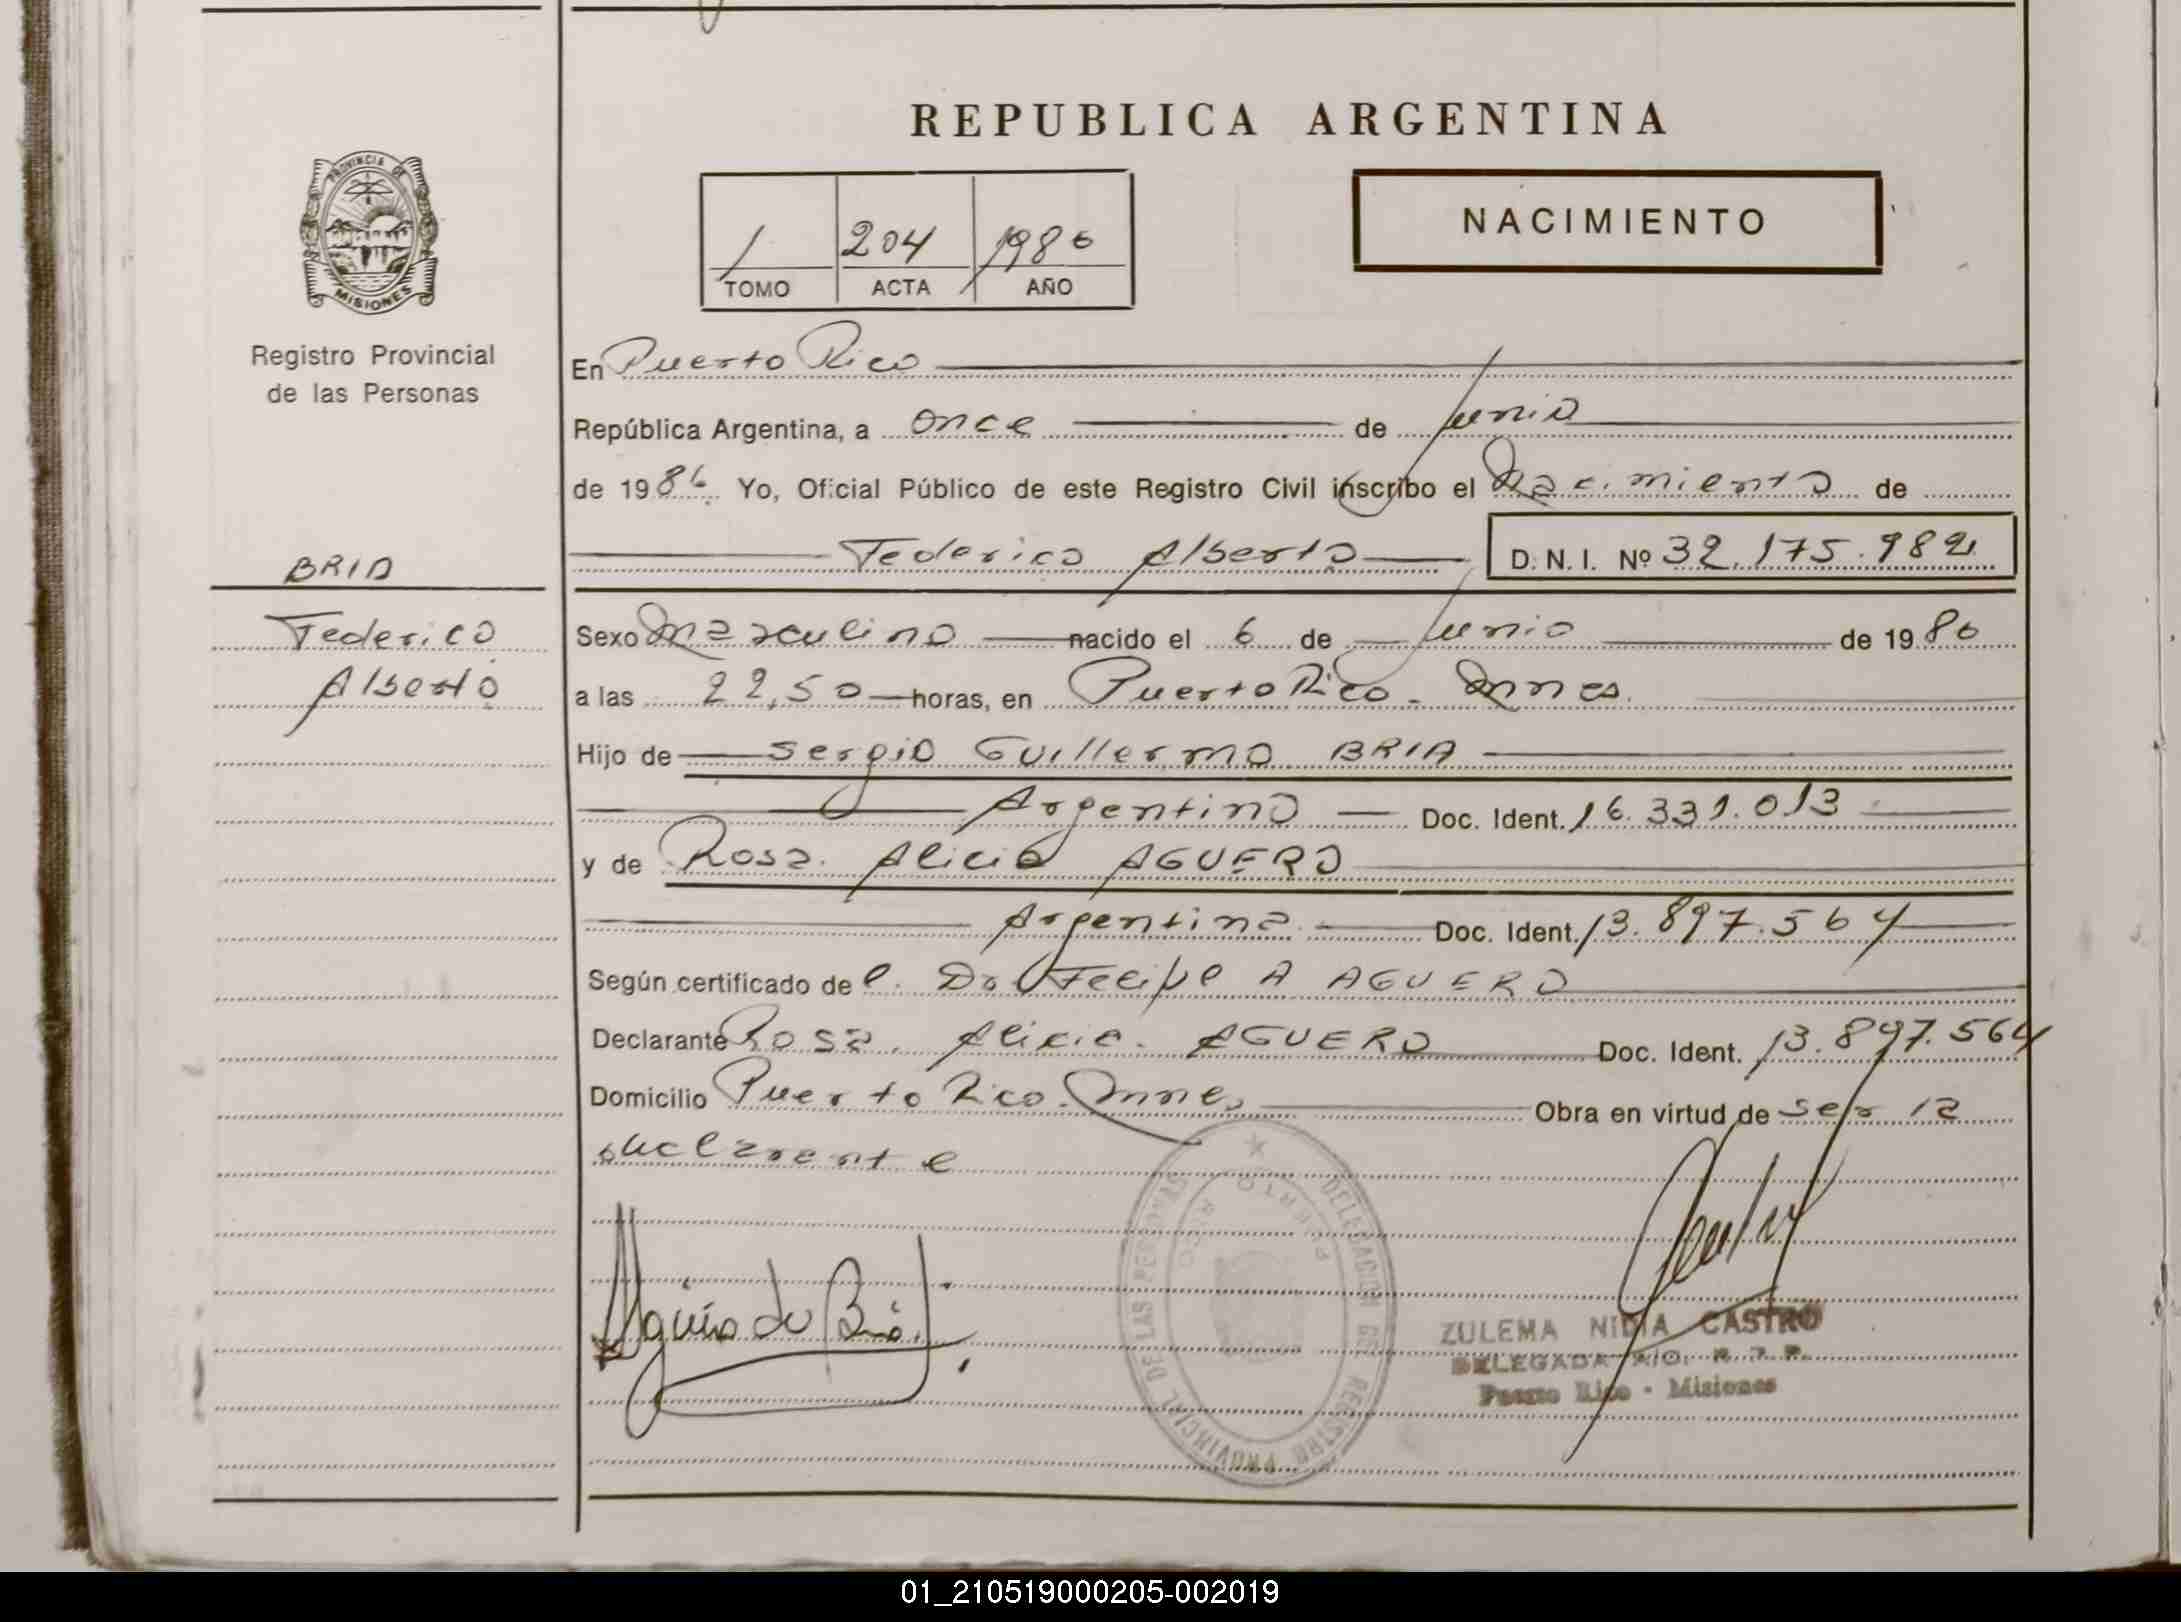 REPUBLICA ARGENTINA
PROVINCIA DE
MISIONES
Registro Provincial
de las Personas
1 204 1986
TOMO ACTA AÑO
NACIMIENTO
En Puerto Rico
República Argentina, a once de Junio
de 1986 Yo, Oficial Público de este Registro Civil inscribo el Nacimiento de
Federico Alberto D. N. I. Nº 32.175.982
BRIA
Federico
Alberto
Sexo Masculino nacido el 6 de Junio de 1986
a las 22,50 horas, en Puerto Rico - Mnes.
Hijo de Sergio Guillermo BRIA
Argentino Doc. Ident. 16.331.013
y de Rosa Alicia AGUERO
Argentina Doc. Ident. 13.897.564
Según certificado del Dr Felipe A AGUERO
Declarante Rosa Alicia AGUERO Doc. Ident. 13.897.564
Domicilio Puerto Rico. Mnes Obra en virtud de ser la
declarante
Aguero de Bria
DELEGACION DEL REGISTRO PROVINCIAL DE LAS PERSONAS
PUERTO RICO
ZULEMA NIDIA CASTRO
DELEGADA R. P. P.
Puerto Rico - Misiones
01_210519000205-002019